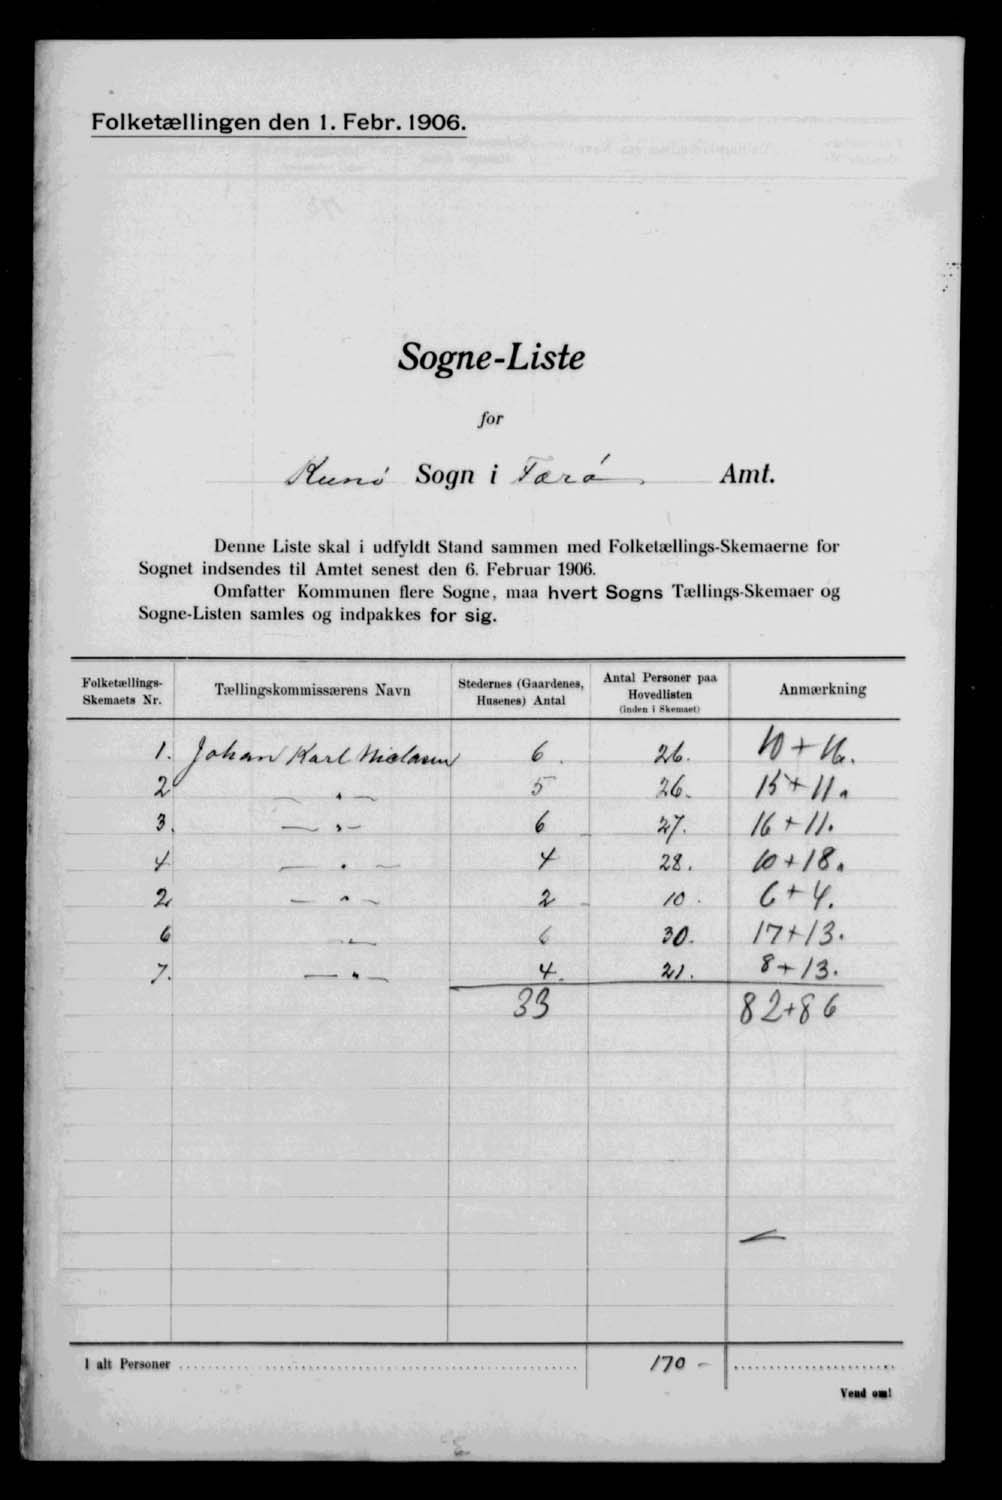 Folketællingen den 1. Febr. 1906.
Sogne-Liste
for
Kunö Sogn i Færö Amt.
Denne Liste skal i udfyldt Stand sammen med Folketællings-Skemaerne for
Sognet indsendes til Amtet senest den 6. Februar 1906.
Omfatter Kommunen flere Sogne, maa hvert Sogns Tællings-Skemaer og
Sogne-Listen samles og indpakkes for sig.
Folketællings-Skemaets Nr. Tællingskommissærens Navn Stedernes (Gaardenes, Husenes) Antal Antal Personer paa Hovedlisten (inden i Skemaet) Anmærkning
1. Johan Karl Nielsen 6 26. 10+16.
2 — " — 5 26. 15+11.
3. — " — 6 27. 16+11.
4 — " — 4 28. 10+18.
2 — " — 2 10. 6+4.
6 — " — 6 30. 17+13.
7. — " — 4. 21. 8+13.
33 82+86
I alt Personer 170 -
Vend om!